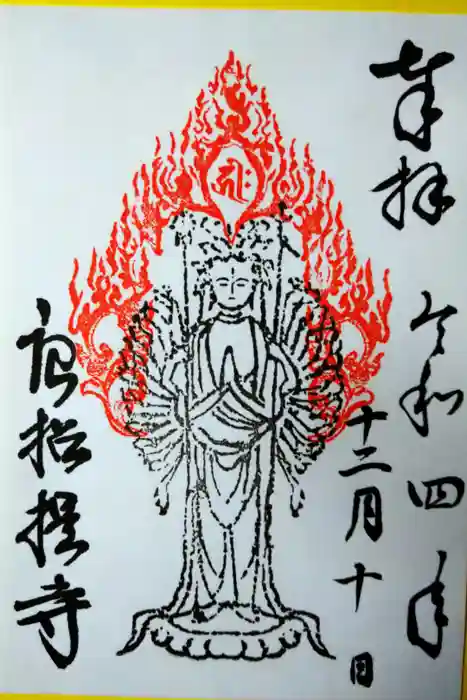 奉拝
令和四年
十二月十日
唐招提寺